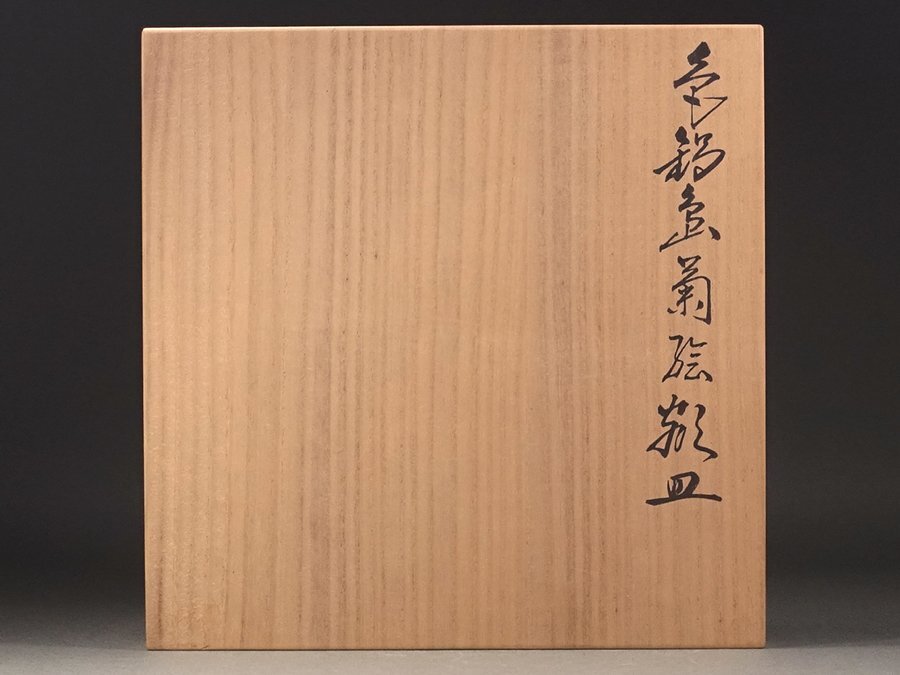 色鍋島菊絵額皿